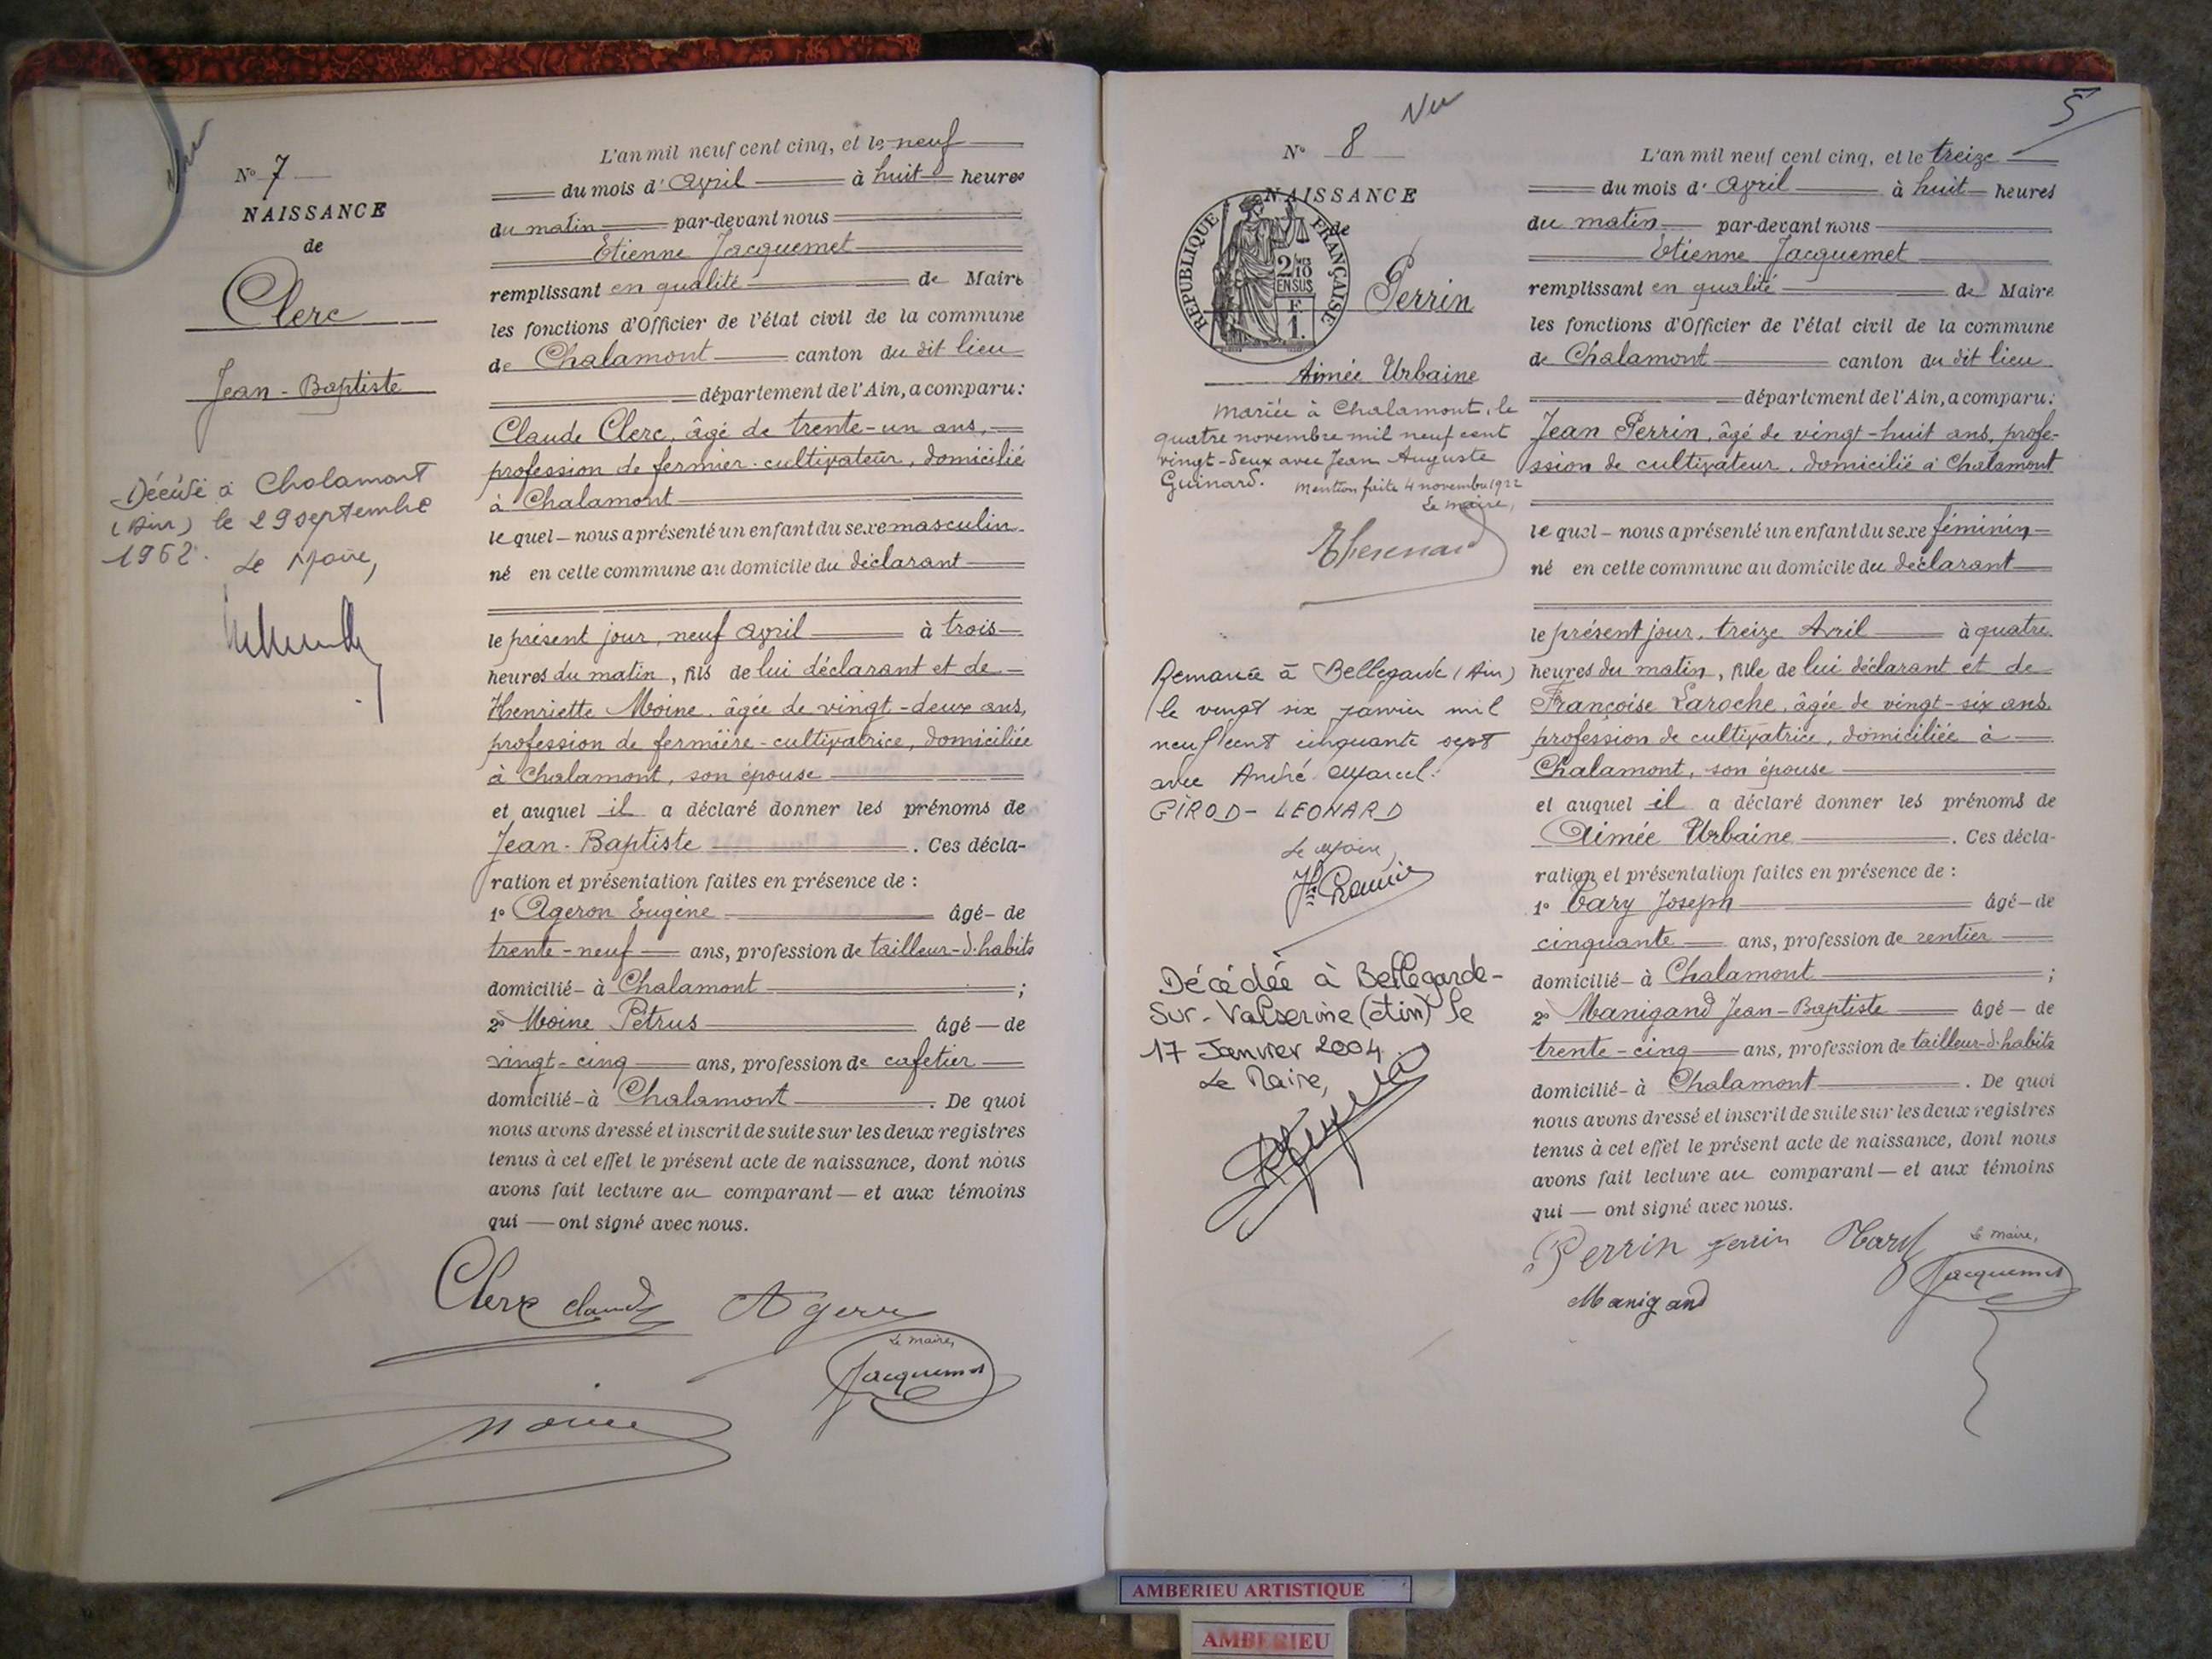 Nº 7
NAISSANCE
de
Clerc
Jean-Baptiste
Décédé à Chalamont
(Ain) le 29 septembre
1962. Le Maire,
L'an mil neuf cent cinq, et le neuf
du mois d'Avril à huit heures
du matin par-devant nous
Etienne Jacquemet
remplissant en qualité de Maire
les fonctions d'Officier de l'état civil de la commune
de Chalamont canton du dit lieu
département de l'Ain, a comparu:
Claude Clerc, âgé de trente-un ans,
profession de fermier-cultivateur, domicilié
à Chalamont
lequel nous a présenté un enfant du sexe masculin
né en cette commune au domicile du déclarant
le présent jour, neuf Avril à trois
heures du matin, fils de lui déclarant et de
Henriette Moine, âgée de vingt-deux ans,
profession de fermière-cultivatrice, domiciliée
à Chalamont, son épouse
et auquel il a déclaré donner les prénoms de
Jean-Baptiste. Ces décla-
ration et présentation faites en présence de :
1º Ageron Eugène âgé de
trente-neuf ans, profession de tailleur-d'habits
domicilié à Chalamont ;
2º Moine Pétrus âgé de
vingt-cinq ans, profession de cafetier
domicilié à Chalamont. De quoi
nous avons dressé et inscrit de suite sur les deux registres
tenus à cet effet le présent acte de naissance, dont nous
avons fait lecture au comparant et aux témoins
qui ont signé avec nous.
Clerc Claude
Le maire,
Jacquemet
Moine
Vu
5
Nº 8
NAISSANCE
de
RÉPUBLIQUE FRANÇAISE
2/10 EN SUS
F. 1.
Perrin
Aimée Urbaine
Mariée à Chalamont, le
quatre novembre mil neuf cent
vingt-deux avec Jean Auguste
Guinard. Mention faite 4 novembre 1922
Le maire,
Remariée à Bellegarde (Ain)
le vingt six janvier mil
neuf cent cinquante sept
avec André Marcel
GIROD-LEONARD
Le Maire,
Décédée à Bellegarde-
Sur-Valserine (Ain) le
17 Janvier 2004.
Le Maire,
L'an mil neuf cent cinq, et le treize
du mois d'Avril à huit heures
du matin par-devant nous
Etienne Jacquemet
remplissant en qualité de Maire
les fonctions d'Officier de l'état civil de la commune
de Chalamont canton du dit lieu
département de l'Ain, a comparu:
Jean Perrin, âgé de vingt-huit ans, profe-
ssion de cultivateur, domicilié à Chalamont
lequel nous a présenté un enfant du sexe féminin
né en cette commune au domicile du déclarant
le présent jour, treize Avril à quatre
heures du matin, fille de lui déclarant et de
Françoise Laroche, âgée de vingt-six ans,
profession de cultivatrice, domiciliée à
Chalamont, son épouse
et auquel il a déclaré donner les prénoms de
Aimée Urbaine. Ces décla-
ration et présentation faites en présence de :
1º Joseph âgé de
cinquante ans, profession de rentier
domicilié à Chalamont ;
2º Manigand Jean-Baptiste âgé de
trente-cinq ans, profession de tailleur-d'habits
domicilié à Chalamont. De quoi
nous avons dressé et inscrit de suite sur les deux registres
tenus à cet effet le présent acte de naissance, dont nous
avons fait lecture au comparant et aux témoins
qui ont signé avec nous.
Perrin
Le maire,
Jacquemet
Manigand
AMBERIEU ARTISTIQUE
AMBERIEU